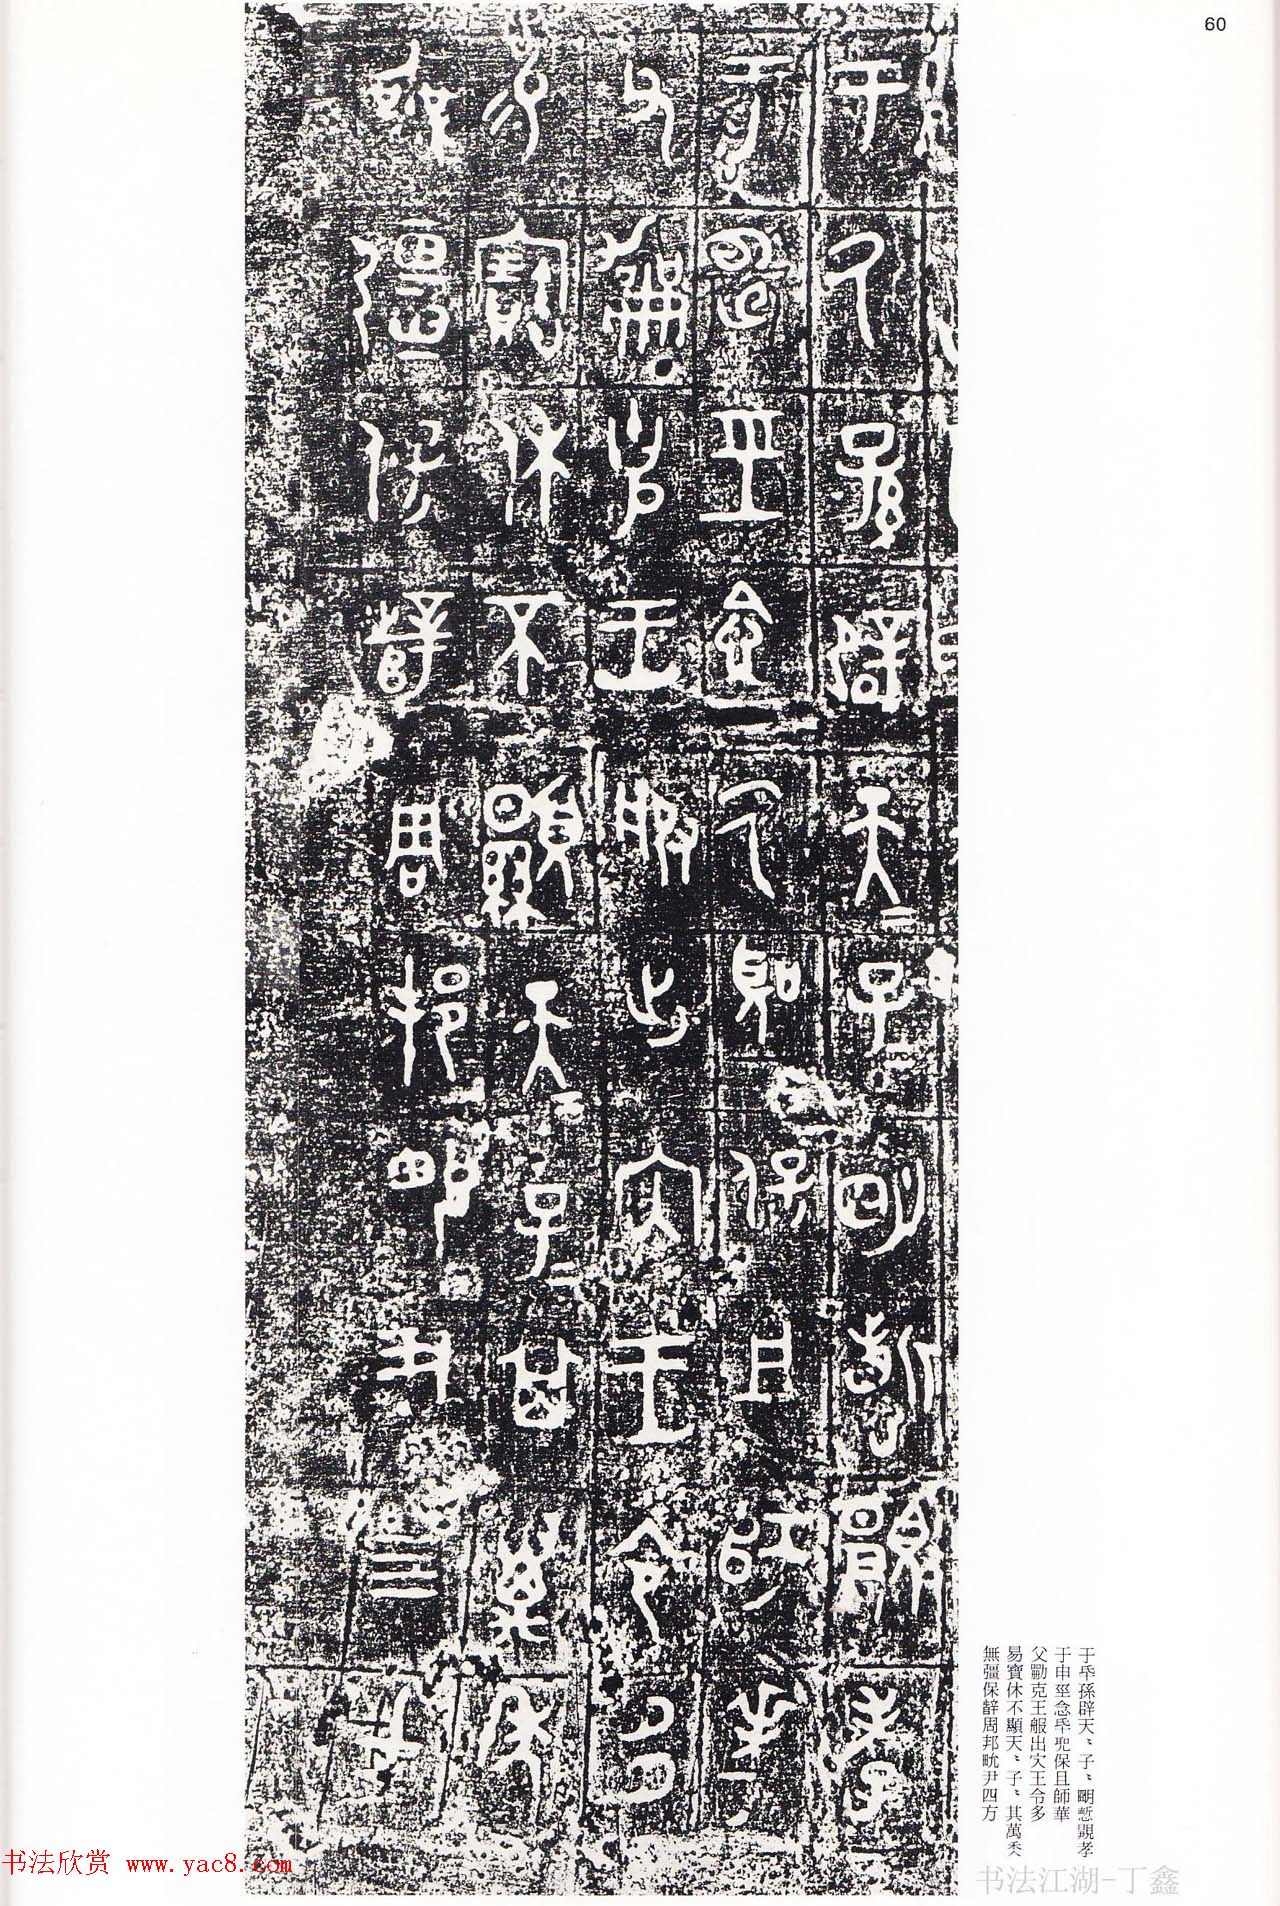 60
于氒孫辟天〻子〻明悊顯孝
于申巠念氒聖保且師華
父勵克王服出內王令多
易寶休不顯天〻子〻其萬年
無彊保辥周邦畯尹四方
书法欣赏 www.yac8.com
书法江湖-丁鑫